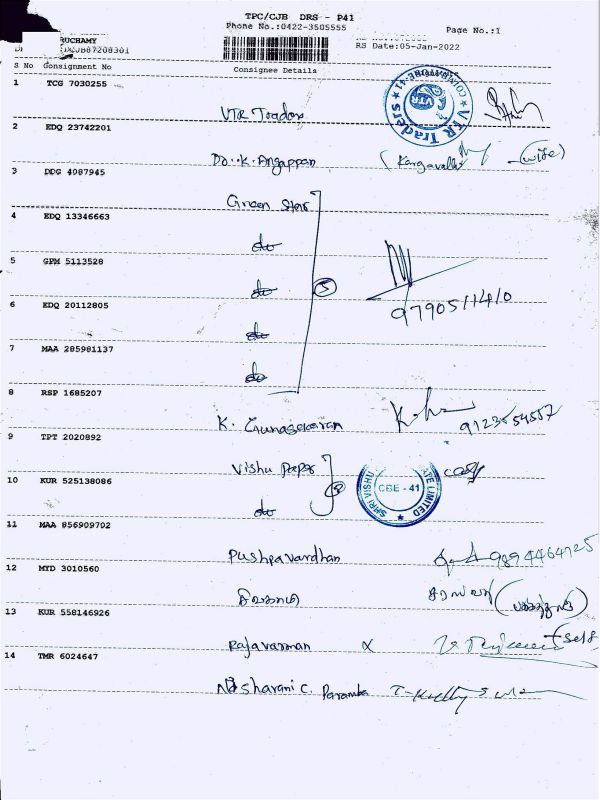 TPC/CJB DRS - P41
Phone No.:0422-3505555
Page No.:1
RUCHAMY
DCJB87208301
RS Date:05-Jan-2022
S No Consignment No Consignee Details
1 TCG 7030255
VTR Traders
COIMBATORE-41
VTR
VTR Traders
2 EDQ 23742201
Dr. K. Angappan (Kangavalli (wife)
3 DDG 4087945
Green Star
4 EDQ 13346663
do
5 GPM 5113528
do 5
9790511410
6 EDQ 20112805
do
7 MAA 285981137
do
8 RSP 1685207
K. Gunasekaran
9123554557
9 TPT 2020892
Vishu Paper
10 KUR 525138086
do
SRI VISHU
CBE - 41
LIMITED
11 MAA 856909702
Pushpavardhan 9894464725
12 MYD 3010560
13 KUR 558146926
Rajavarman X (self
14 TMR 6024647
Sharani C.